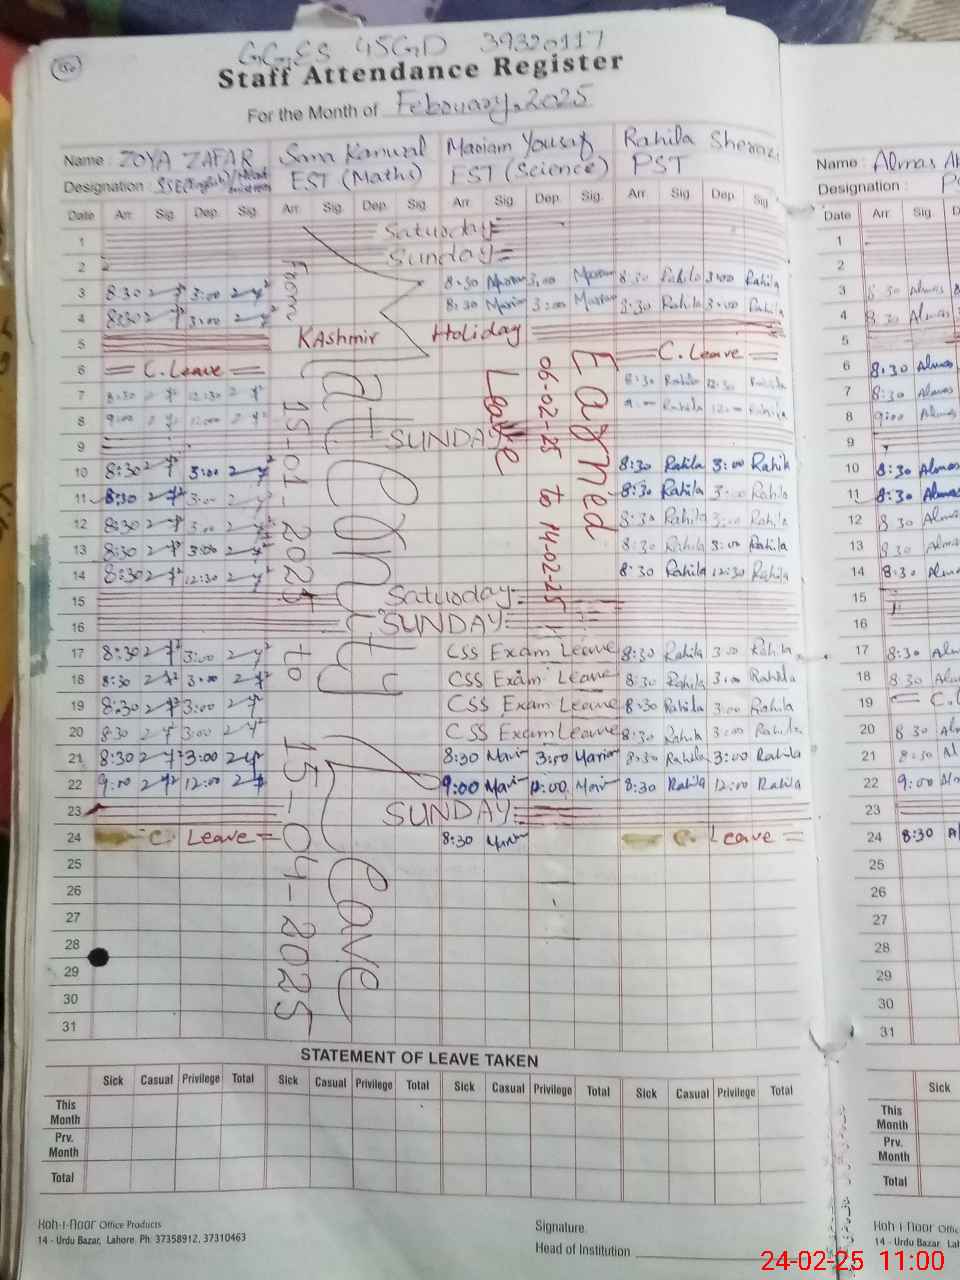 150
GGES 45GD 39320117
Staff Attendance Register
For the Month of February, 2025
Name : ZOYA ZAFAR Sana Kanwal Mariam Yousaf Rahila Sherazi
Designation : SSE(English)/Head mistress EST (Maths) EST (Science) PST
Date Arr. Sig. Dep. Sig. Arr. Sig. Dep. Sig. Arr. Sig. Dep. Sig. Arr. Sig. Dep. Sig.
1 Saturday
2 Sunday
3 8:30 3:00 8:30 Mariam 3:00 Mariam 8:30 Rahila 3:00 Rahila
4 8:30 3:00 8:30 Mariam 3:00 Mariam 8:30 Rahila 3:00 Rahila
5 Kashmir Holiday
6 C. Leave C. Leave
7 8:30 12:30 8:30 Rahila 12:30 Rahila
8 9:00 12:00 9:00 Rahila 12:00 Rahila
9 SUNDAY
10 8:30 3:00 8:30 Rahila 3:00 Rahila
11 8:30 3:00 8:30 Rahila 3:00 Rahila
12 8:30 3:00 8:30 Rahila 3:00 Rahila
13 8:30 3:00 8:30 Rahila 3:00 Rahila
14 8:30 12:30 8:30 Rahila 12:30 Rahila
15 Saturday
16 SUNDAY
17 8:30 3:00 CSS Exam Leave 8:30 Rahila 3:00 Rahila
18 8:30 3:00 CSS Exam Leave 8:30 Rahila 3:00 Rahila
19 8:30 3:00 CSS Exam Leave 8:30 Rahila 3:00 Rahila
20 8:30 3:00 CSS Exam Leave 8:30 Rahila 3:00 Rahila
21 8:30 3:00 8:30 3:00 8:30 Rahila 3:00 Rahila
22 9:00 12:00 9:00 8:30 Rahila 12:00 Rahila
23 SUNDAY
24 C. Leave 8:30 C. Leave
25
26
27
28
29
30
31
From 15-01-2025 to 15-04-2025
Maternity Leave
Earned Leave
06-02-25 to 14-02-25
STATEMENT OF LEAVE TAKEN
Sick Casual Privilege Total Sick Casual Privilege Total Sick Casual Privilege Total Sick Casual Privilege Total
This Month
Prv. Month
Total
Koh-i-Noor Office Products
14 - Urdu Bazar, Lahore. Ph: 37358912, 37310463
Signature
Head of Institution
Name : Almas
Designation :
Date Arr. Sig.
1
2
3 8:30 Almas
4 8:30 Almas
5
6 8:30 Almas
7 8:30 Almas
8 9:00 Almas
9
10 8:30 Almas
11 8:30 Almas
12 8:30
13 8:30
14 8:30
15
16
17 8:30
18 8:30
19
20 8:30
21 8:30
22 9:00
23
24 8:30
25
26
27
28
29
30
31
Sick
This Month
Prv. Month
Total
Koh-i-Noor Office
14 - Urdu Bazar
24-02-25 11:00